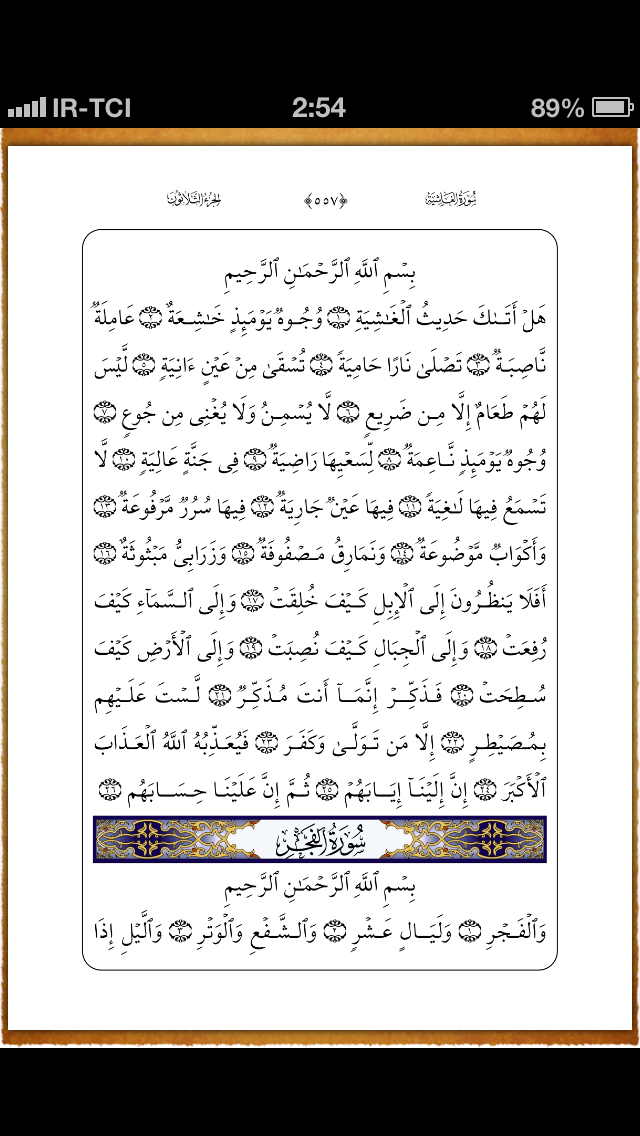 IR-TCI 2:54 89%
سُورَةُ الغَاشِيَةِ ﴿٥٥٧﴾ الجُزءُ الثَّلَاثُونَ
بِسۡمِ ٱللَّهِ ٱلرَّحۡمَـٰنِ ٱلرَّحِيمِ
هَلۡ أَتَىٰكَ حَدِيثُ ٱلۡغَـٰشِيَةِ ١ وُجُوهٌ يَوۡمَئِذٍ خَـٰشِعَةٌ ٢ عَامِلَةٌ
نَّاصِبَةٌ ٣ تَصۡلَىٰ نَارًا حَامِيَةً ٤ تُسۡقَىٰ مِنۡ عَيۡنٍ ءَانِيَةٍ ٥ لَّيۡسَ
لَهُمۡ طَعَامٌ إِلَّا مِن ضَرِيعٍ ٦ لَّا يُسۡمِنُ وَلَا يُغۡنِى مِن جُوعٍ ٧
وُجُوهٌ يَوۡمَئِذٍ نَّاعِمَةٌ ٨ لِّسَعۡيِهَا رَاضِيَةٌ ٩ فِى جَنَّةٍ عَالِيَةٍ ١٠ لَّا
تَسۡمَعُ فِيهَا لَـٰغِيَةً ١١ فِيهَا عَيۡنٌ جَارِيَةٌ ١٢ فِيهَا سُرُرٌ مَّرۡفُوعَةٌ ١٣
وَأَكۡوَابٌ مَّوۡضُوعَةٌ ١٤ وَنَمَارِقُ مَصۡفُوفَةٌ ١٥ وَزَرَابِىُّ مَبۡثُوثَةٌ ١٦
أَفَلَا يَنظُرُونَ إِلَى ٱلۡإِبِلِ كَيۡفَ خُلِقَتۡ ١٧ وَإِلَى ٱلسَّمَآءِ كَيۡفَ
رُفِعَتۡ ١٨ وَإِلَى ٱلۡجِبَالِ كَيۡفَ نُصِبَتۡ ١٩ وَإِلَى ٱلۡأَرۡضِ كَيۡفَ
سُطِحَتۡ ٢٠ فَذَكِّرۡ إِنَّمَآ أَنتَ مُذَكِّرٌ ٢١ لَّسۡتَ عَلَيۡهِم
بِمُصَيۡطِرٍ ٢٢ إِلَّا مَن تَوَلَّىٰ وَكَفَرَ ٢٣ فَيُعَذِّبُهُ ٱللَّهُ ٱلۡعَذَابَ
ٱلۡأَكۡبَرَ ٢٤ إِنَّ إِلَيۡنَآ إِيَابَهُمۡ ٢٥ ثُمَّ إِنَّ عَلَيۡنَا حِسَابَهُم ٢٦
سُورَةُ الفَجۡرِ
بِسۡمِ ٱللَّهِ ٱلرَّحۡمَـٰنِ ٱلرَّحِيمِ
وَٱلۡفَجۡرِ ١ وَلَيَالٍ عَشۡرٍ ٢ وَٱلشَّفۡعِ وَٱلۡوَتۡرِ ٣ وَٱلَّيۡلِ إِذَا